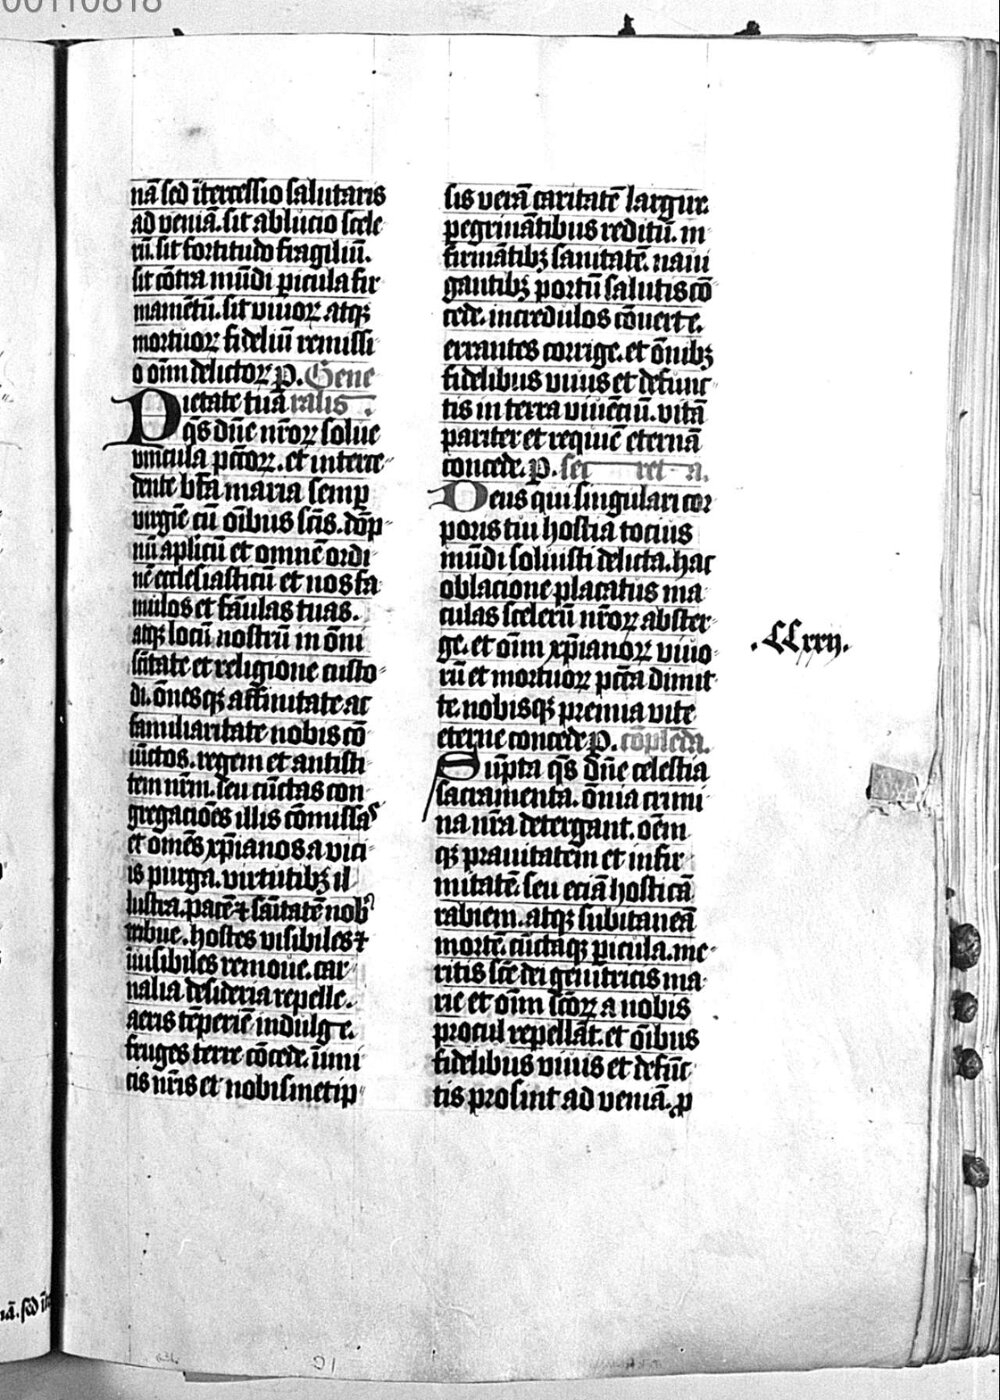 00110818
nā sed ītercessio salutaris
ad veniā. sit ablucio scele
rū. sit fortitudo fragiliū.
sit cōtra mūdi picula fir
mamētū. sit viuoꝝ atqꝫ
mortuoꝝ fideliū remissi
o oīm delictoꝝ p. Gene
Pietate tuā ralis.
qs̄ dn̄e nr̄oꝝ solue
vincula pctōꝝ. et interce
dente bt̄a maria semp
virgīe cū oībus sc̄is. dōp
nū aplicū et omnē ordi
nē ecclesiasticū et nos fa
mulos et fāulas tuas.
atqꝫ locū nostrū in ōni
sc̄itate et religione custo
di. ōnesqꝫ affinitate ac
familiaritate nobis cō
iūctos. regem et antisti
tem nr̄m. seu cūctas con
gregaciōes illis cōmissas
et omēs xp̄ianos a vici
is purga. virtutibꝫ il
lustra. pacē ⁊ sāitatē nobꝰ
tribue. hostes visibiles ⁊
īuisibiles remoue. car
nalia desideria repelle.
aeris tēperiē indulge.
fruges terre cōcede. īimi
cis nr̄is et nobismetip
sis verā caritatē largire.
pegrinātibus reditū. in
firmātibꝫ sanitatē. naui
gantibꝫ portū salutis cō
cede. incredulos cōuerte.
errantes corrige. et ōnibꝫ
fidelibus viuis et defunc
tis in terra viuēciū. vitā
pariter et requiē eternā
concede. p. sec ret a.
Deus qui singulari cor
poris tui hostia tocius
mūdi soluisti delicta. hac
oblacione placatus ma
culas scelerū nr̄oꝝ abster
ge. et oīm xp̄ianoꝝ viuo
rū et mortuoꝝ pctā dimit
te. nobisqꝫ premia vite
eterne concede p. cōplēda.
Sūpta qs̄ dn̄e celestia
sacramenta. ōnia crimi
na nr̄a detergant. oēm
qꝫ prauitatem et infir
mitatē. seu eciā hosticā
rabiem. atqꝫ subitaneā
mortē. cūctaqꝫ picula. me
ritis sc̄e dei genitricis ma
rie et oīm sc̄oꝝ a nobis
procul repellāt. et oībus
fidelibus viuis et defūc
tis prosint ad veniā. p